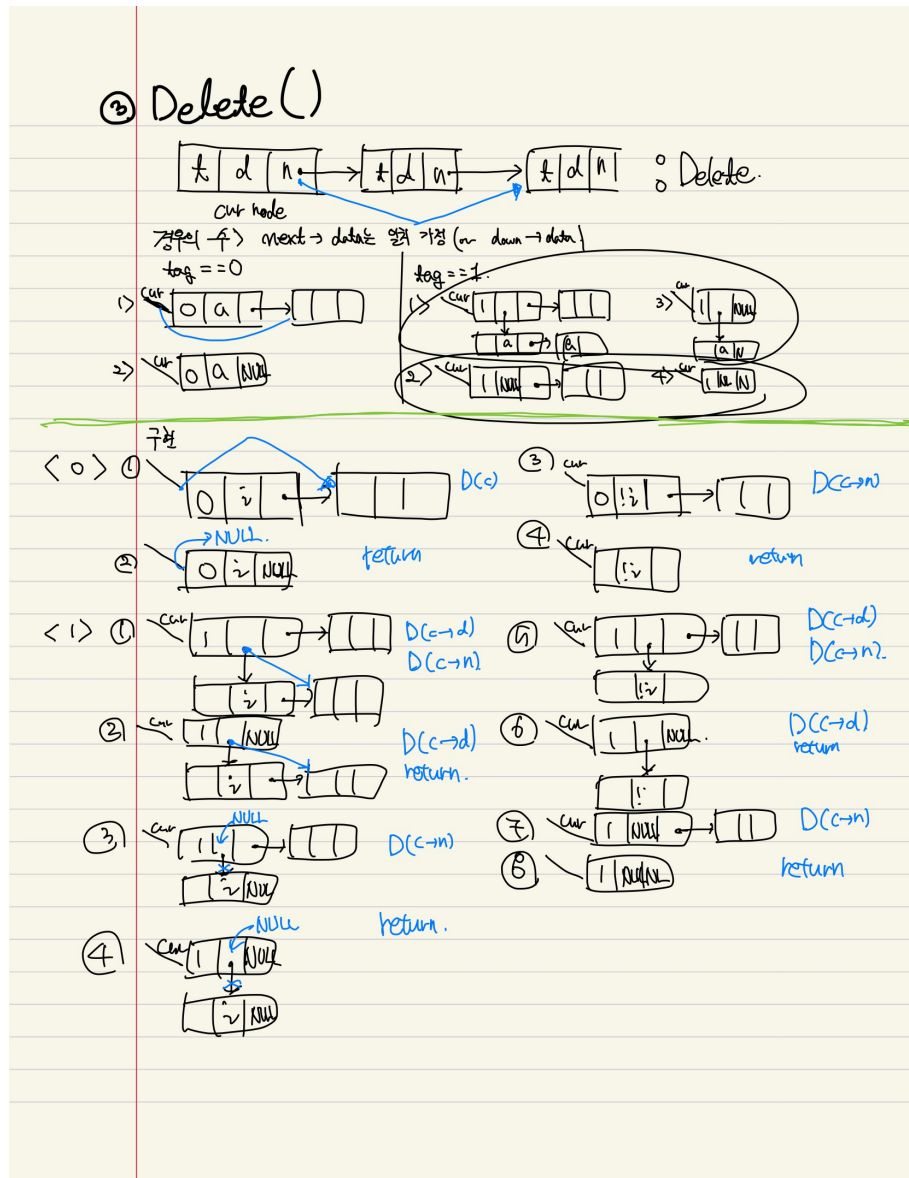 ③ Delete()
t d n t d n t d n : Delete.
cur node
경우의 수> next → data는 일치 가정 (or down → data)
tag == 0
1> cur 0 a
2> cur 0 a NULL
tag == 1.
1> cur 1 a a
3> cur 1 NULL a N
2> cur 1 NULL
4> cur 1 NL N
구현
<0> ① 0 i D(c)
② →NULL. 0 i NULL return
③ cur 0 !i D(c→n)
④ cur !i return
<1> ① cur 1 i D(c→d)
D(c→n)
② cur 1 NULL i D(c→d)
return.
③ cur 1 NULL i NULL D(c→n)
④ cur 1 NULL NULL i NULL return.
⑤ cur 1 !i D(c→d)
D(c→n).
⑥ cur 1 NULL. !i D(c→d)
return
⑦ cur 1 NULL D(c→n)
⑧ 1 NL NL return